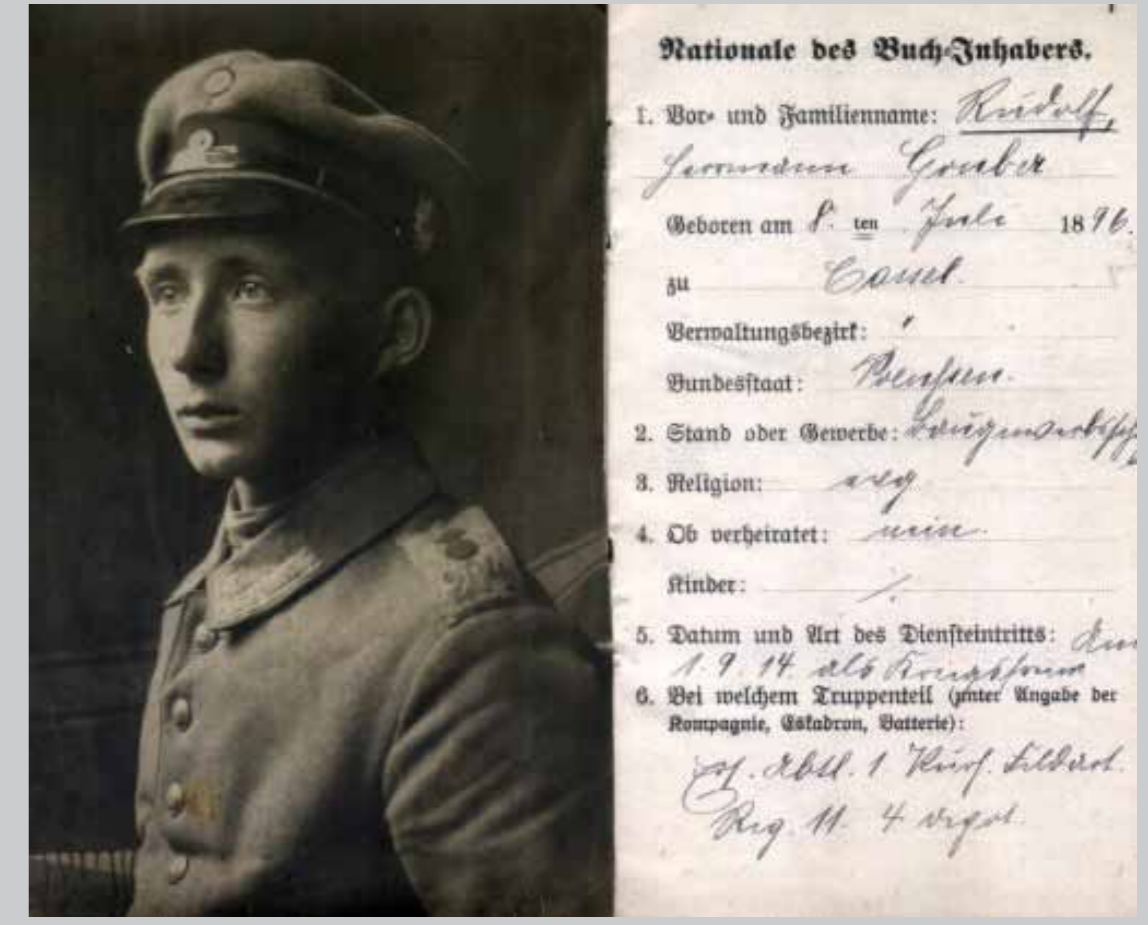 Nationale des Buch-Inhabers.
1. Vor- und Familienname: Rudolf,
Herrmann Gruber
Geboren am 8. ten Juli 1896.
zu Cassel.
Verwaltungsbezirk: "
Bundesstaat: Preußen.
2. Stand oder Gewerbe: Baugewerkssch
3. Religion: evg
4. Ob verheiratet: nein.
Kinder: /.
5. Datum und Art des Diensteintritts: Am
1. 9. 14. als Kriegsfreiw
6. Bei welchem Truppenteil (unter Angabe der
Kompagnie, Eskadron, Batterie):
Abtl. 1 Kurh. Feldart.
Reg. 11. 4 depot.